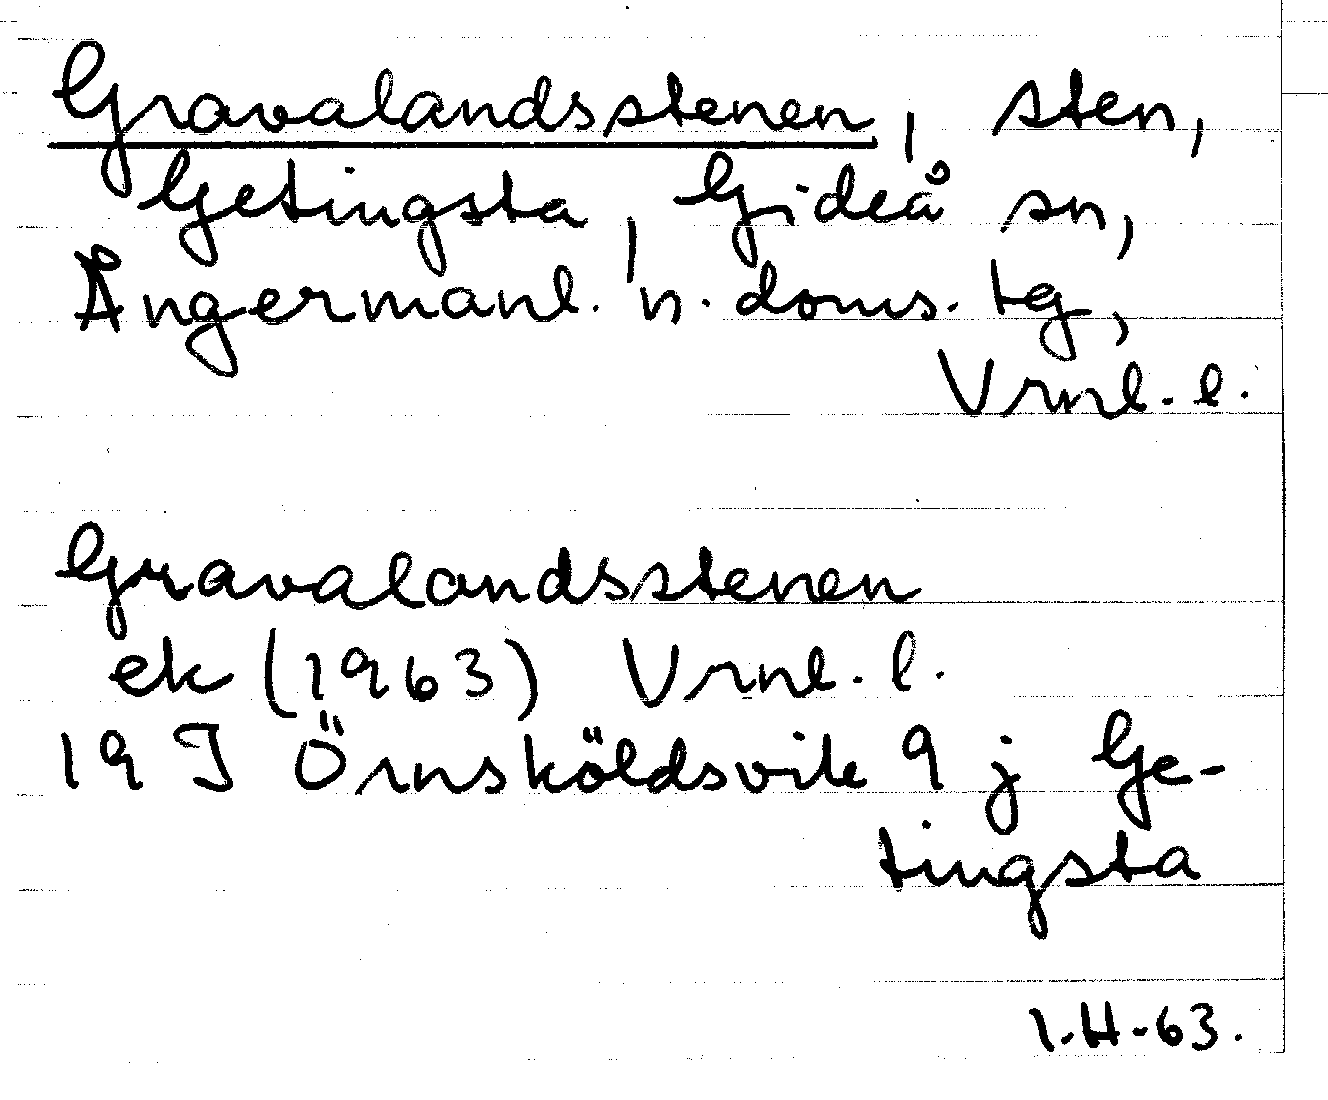 Gravalandsstenen, sten,
Getingsta, Gideå sn,
Ångermanl. n. doms. tg,
Vrnl. l.
Gravalandsstenen
ek (1963) Vrnl. l.
19 J Örnsköldsvik 9 j Ge-
tingsta
I.H-63.